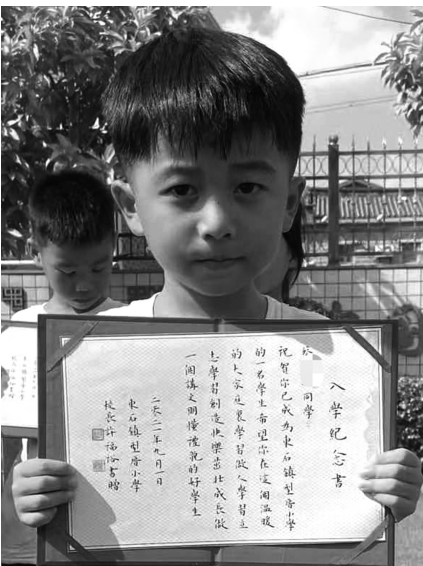 入學紀念書
同學
祝賀你已成為東石鎮型厝小學
的一名學生希望你在這個溫暖
的大家庭裏學習做人學習立
志學習創造快樂茁壯成長做
一個講文明懂禮貌的好學生
二〇二一年九月一日
東石鎮型厝小學
校長許福 書贈